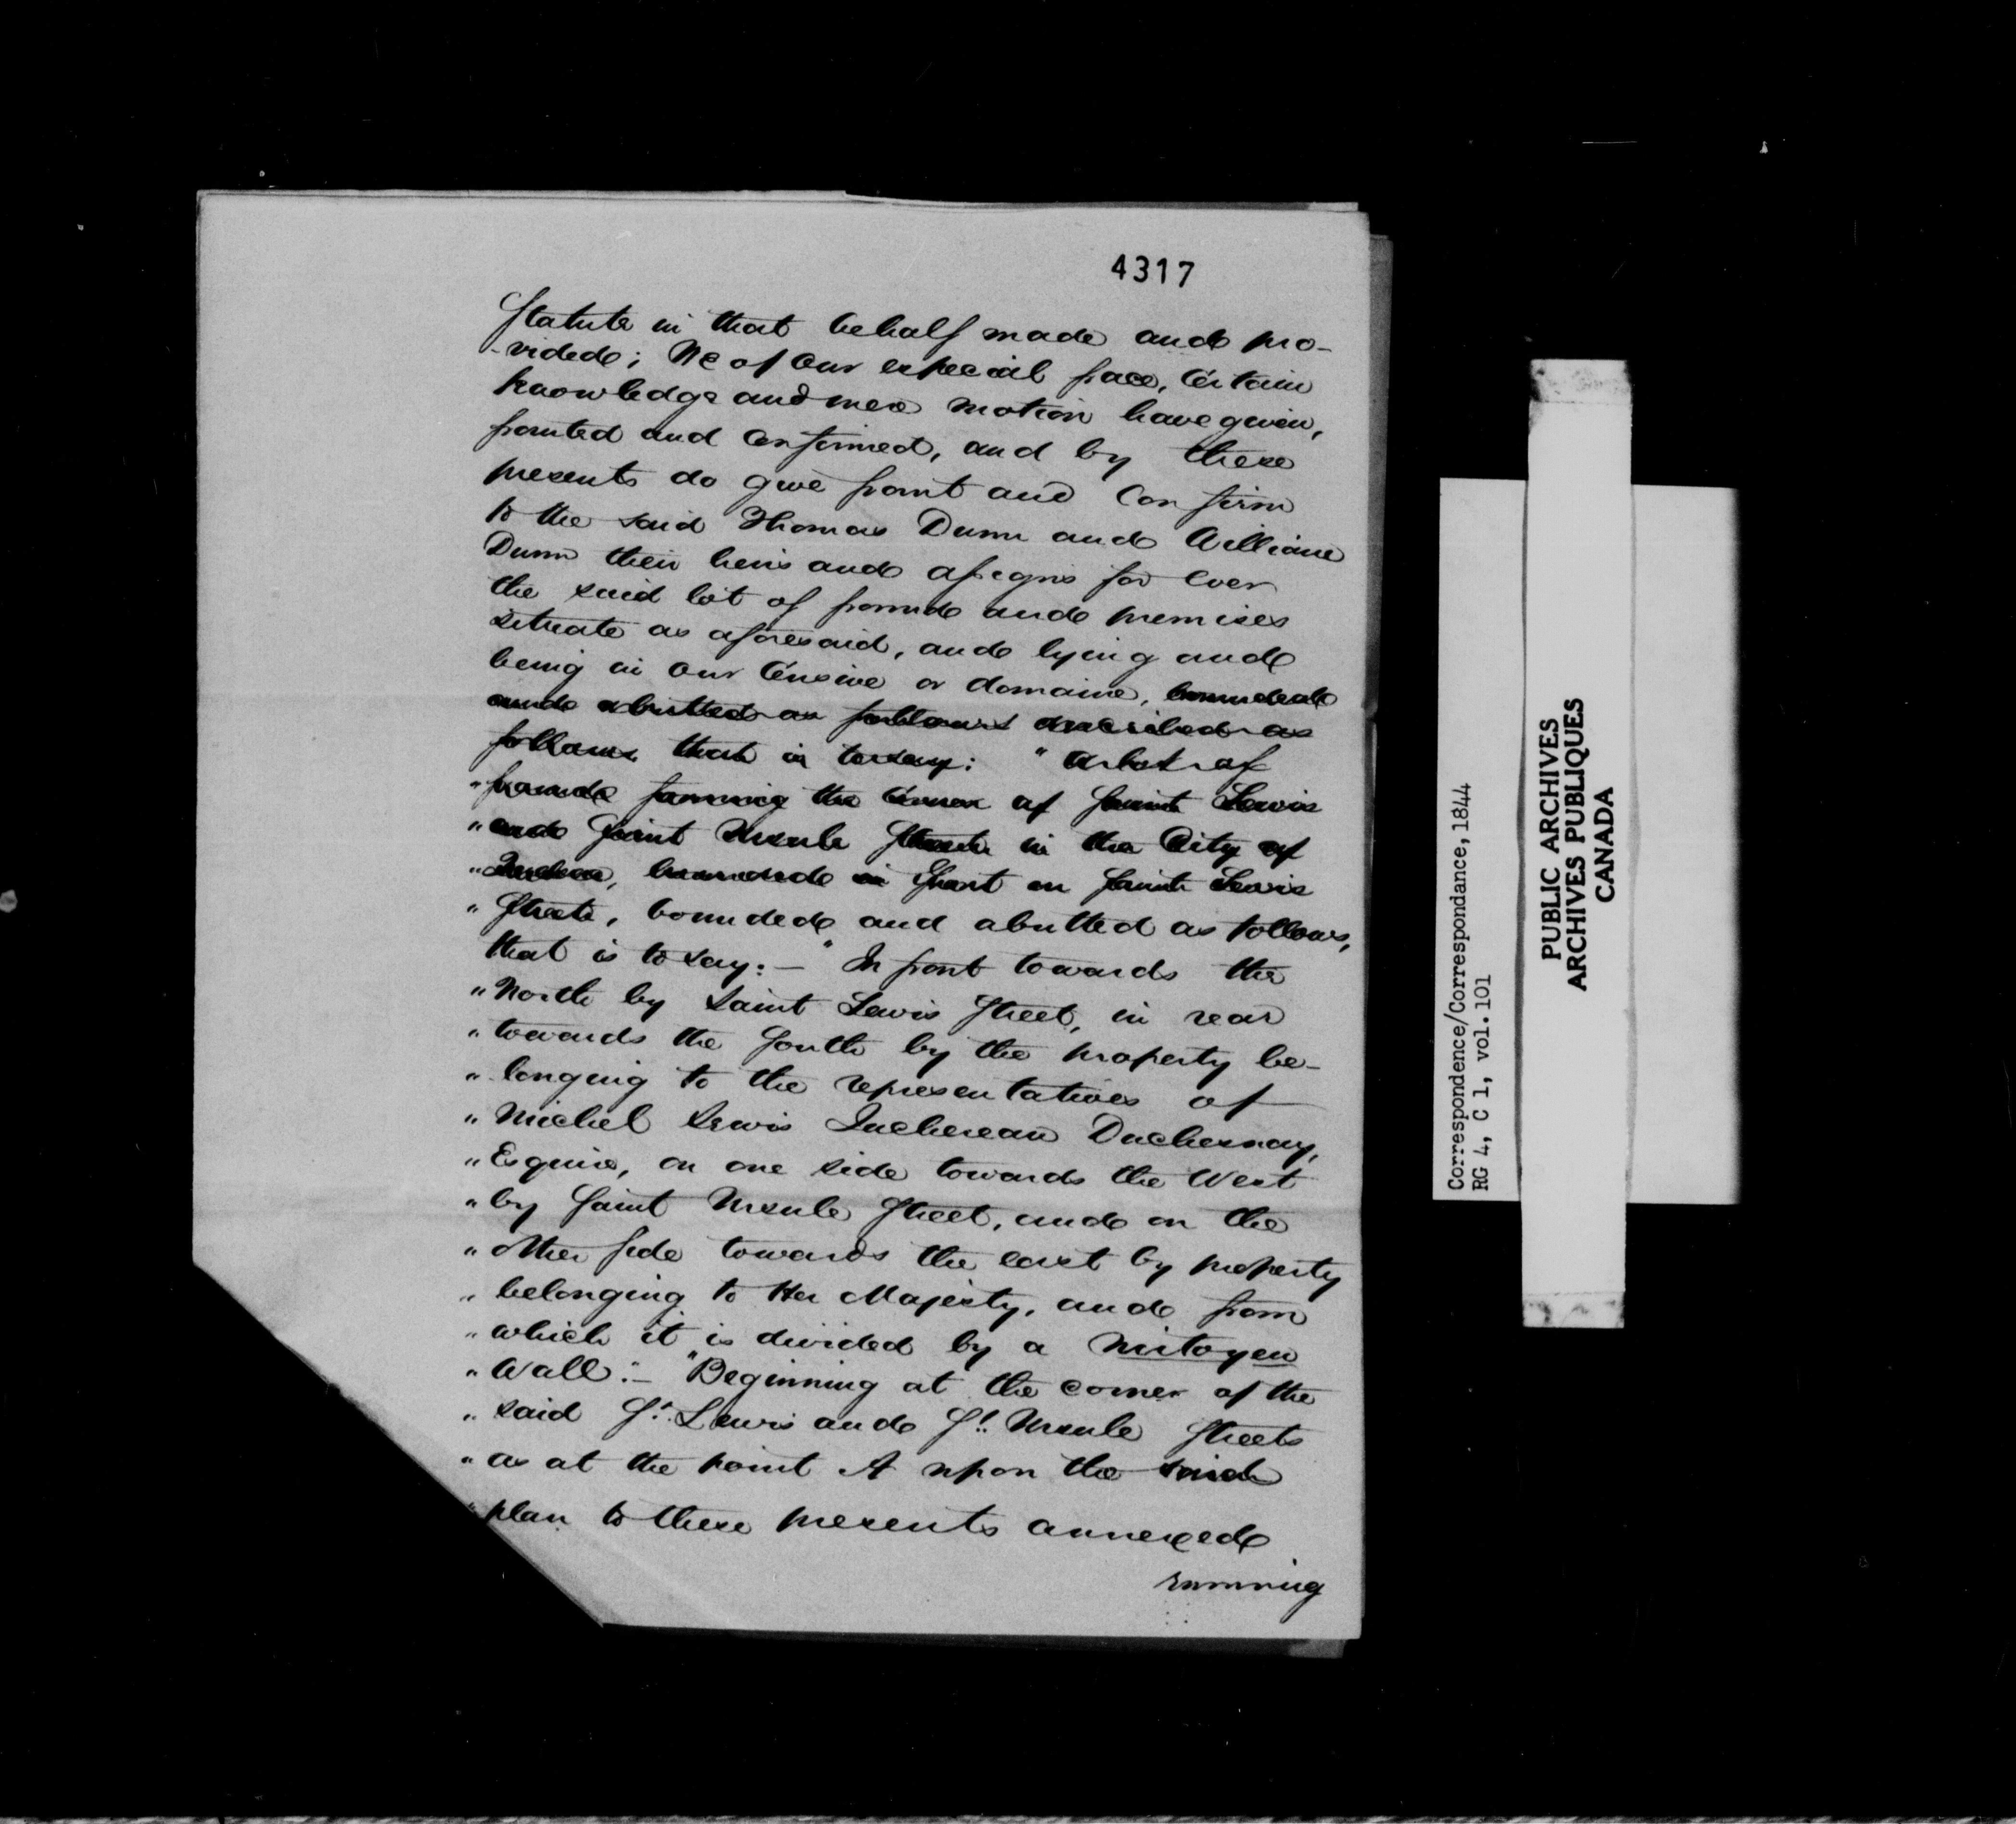 4317
Statute in that behalf made and pro-
-vided; We of Our especial grace, Certain
knowledge and mere motion have given,
granted and Confirmed, and by these
presents do give grant and Confirm
to the said Thomas Dunn and William
Dunn their heirs and assigns for Ever
the said lot of ground and premises
situate as aforesaid, and lying and
being in Our Censive or domaine, bounded
and abutted as follows described as
follows that is to say: " A lot of
" ground forming the Corner of Saint Lewis
" and Saint Ursule Streets in the City of
" Quebec, bounded in front on Saint Lewis
" Street, bounded and abutted as follows,
that is to say:— " In front towards the
" North by Saint Lewis Street, in rear
" towards the South by the property be-
" longing to the representatives of
" Michel Lewis Juchereau Duchesnay,
" Esquire, on one side towards the West
" by Saint Ursule Street, and on the
" other side towards the east by property
" belonging to Her Majesty, and from
" which it is divided by a mitoyen
" Wall:— "Beginning at the corner of the
" said St. Lewis and St. Ursule Streets
" as at the point A upon the said
" plan to these presents annexed
running
Correspondence/Correspondance, 1844
RG 4, C 1, vol. 101
PUBLIC ARCHIVES
ARCHIVES PUBLIQUES
CANADA